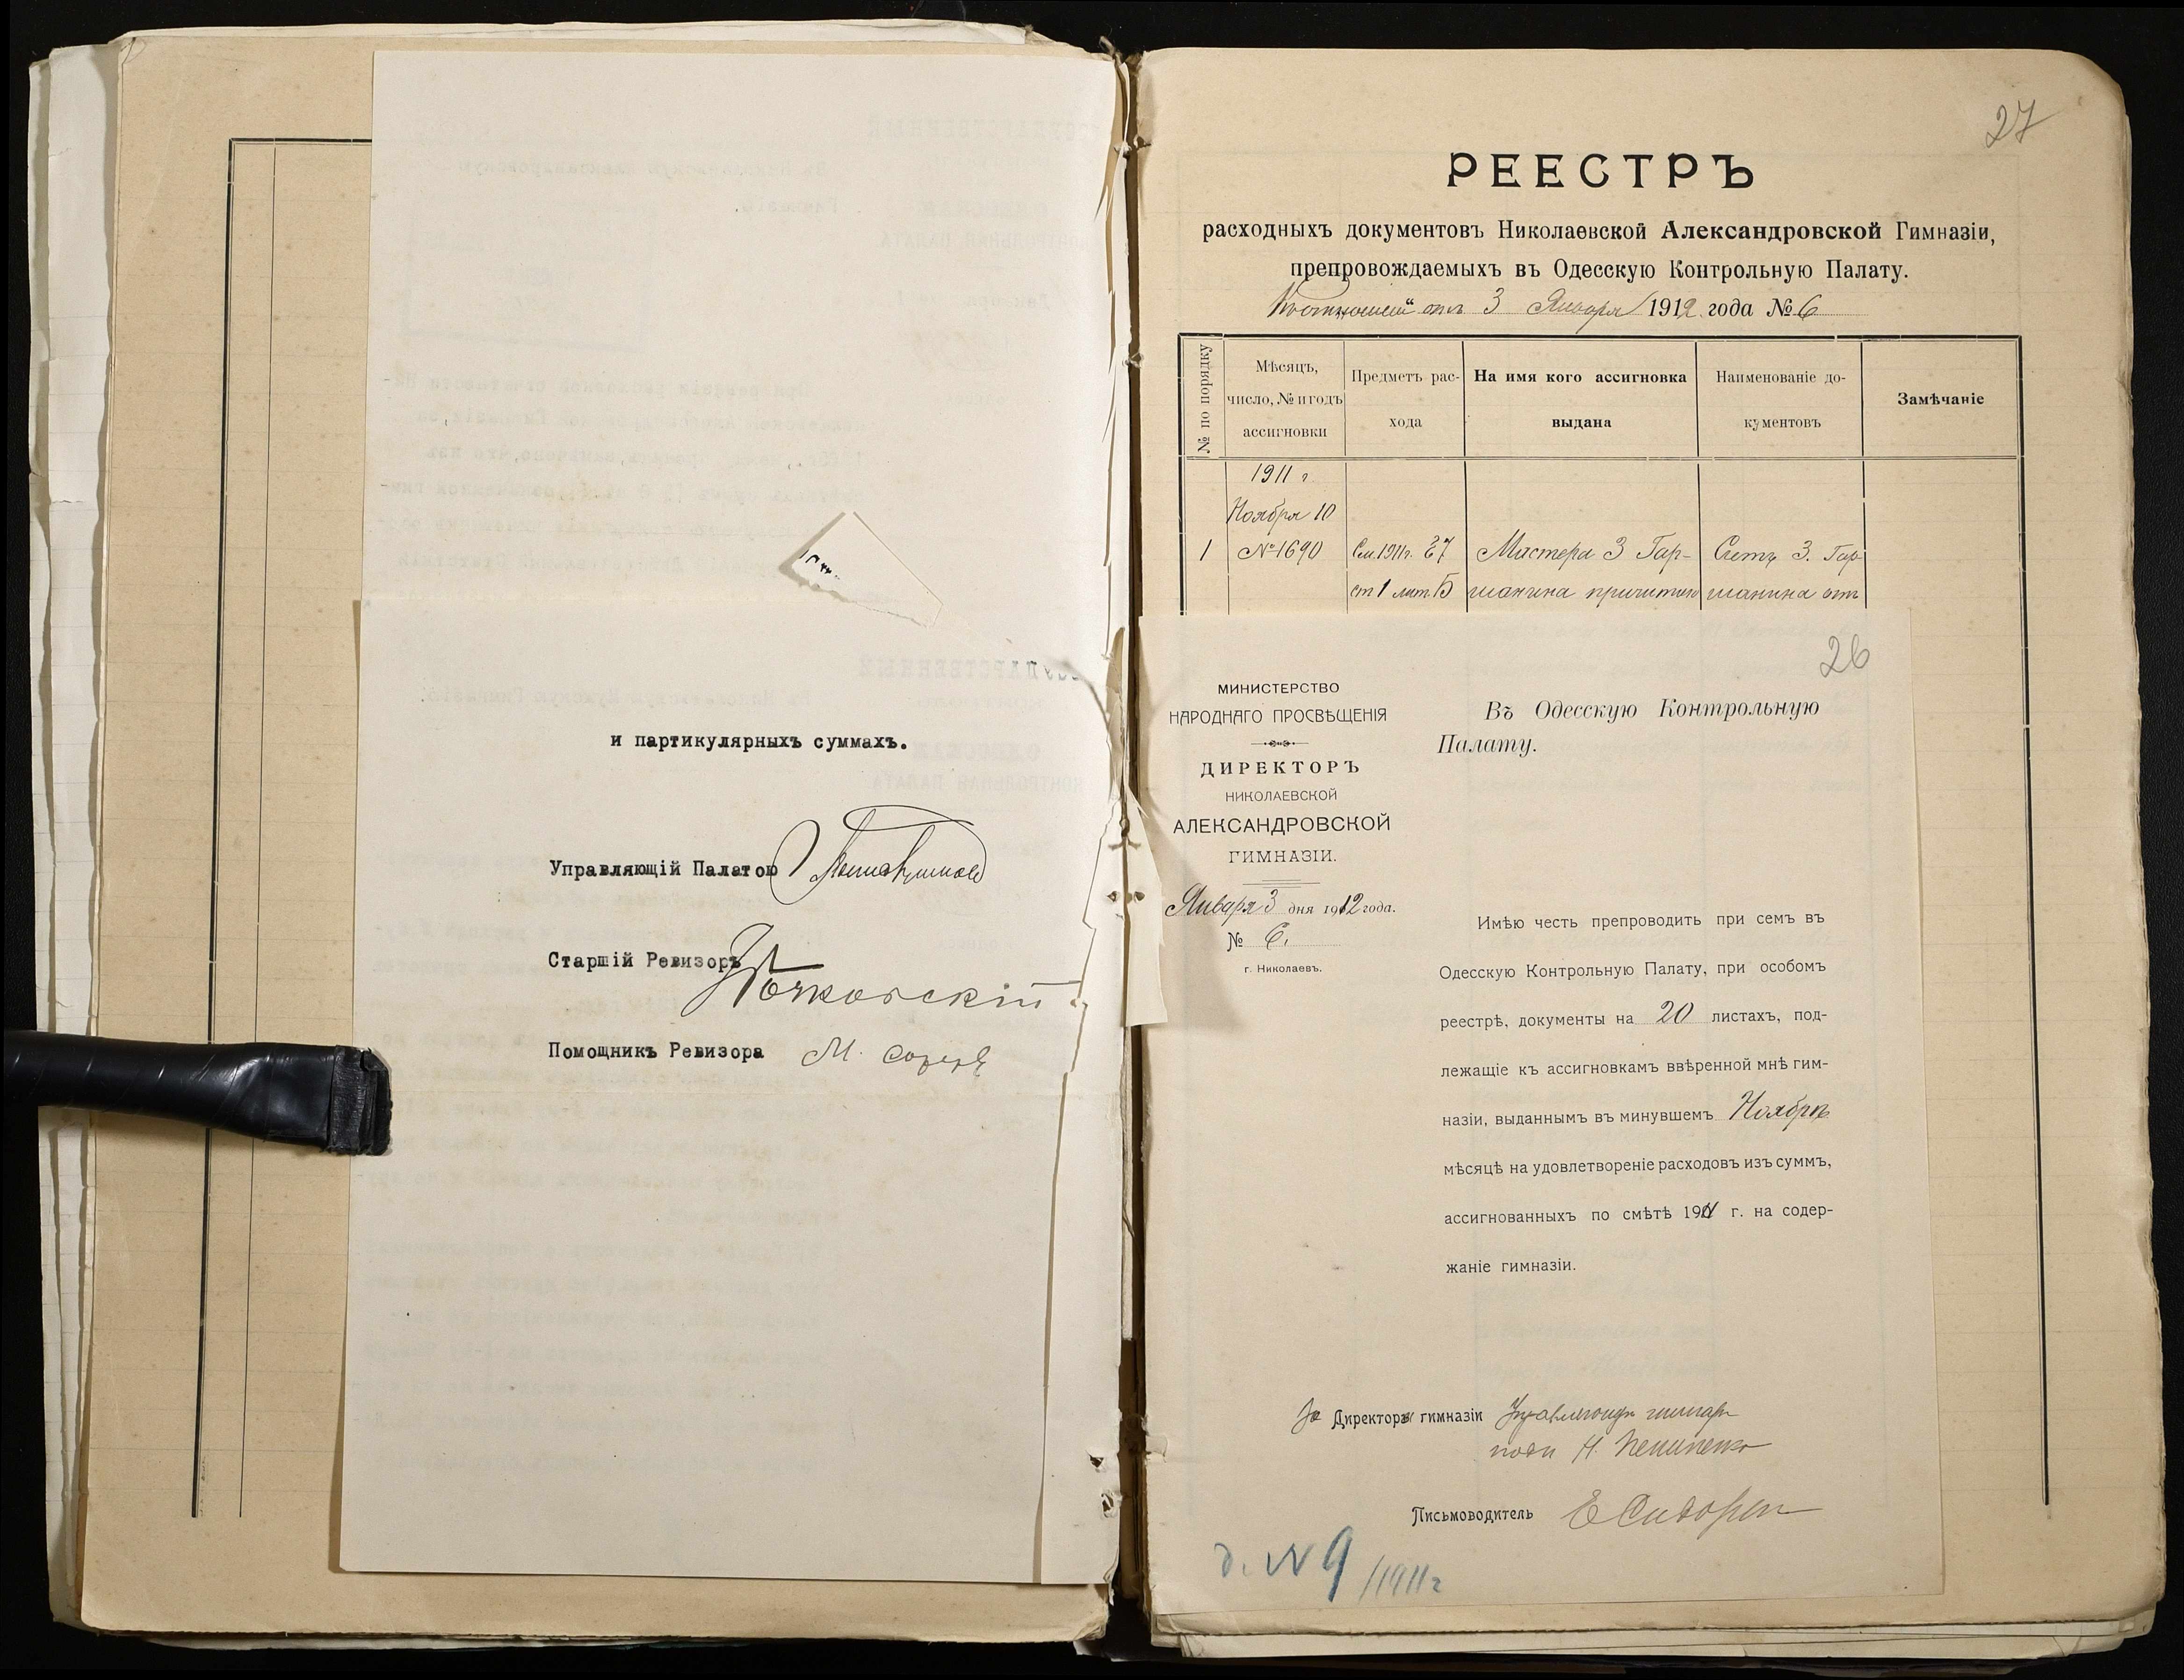 и партикулярныхъ суммахъ.
Управляющій Палатою
Старшій Ревизоръ
Помощникъ Ревизора М.
27
РЕЕСТРЪ
расходныхъ документовъ Николаевской Александровской Гимназіи,
препровождаемыхъ въ Одесскую Контрольную Палату.
отъ 3 Января 1912 года № 6
№ по порядку
Мѣсяцъ,
число, № и годъ
ассигновки
Предметъ рас-
хода
На имя кого ассигновка
выдана
Наименованіе до-
кументовъ
Замѣчаніе
1911 г
Ноября 10
1 № 1690 См. 1911г. § 7 Мастера З Гар- Счетъ З. Гар
ст 1 лит. Б шанина шанина отъ
26
МИНИСТЕРСТВО
НАРОДНАГО ПРОСВѢЩЕНІЯ
ДИРЕКТОРЪ
НИКОЛАЕВСКОЙ
АЛЕКСАНДРОВСКОЙ
ГИМНАЗІИ.
Января 3 дня 1912 года.
№ 6.
г. Николаевъ.
Въ Одесскую Контрольную
Палату.
Имѣю честь препроводить при семъ въ
Одесскую Контрольную Палату, при особом
реестрѣ, документы на 20 листахъ, под-
лежащіе къ ассигновкамъ ввѣренной мнѣ гим-
назіи, выданнымъ въ минувшемъ Ноябрѣ
мѣсяцѣ на удовлетвореніе расходовъ изъ суммъ,
ассигнованныхъ по смѣтѣ 1911 г. на содер-
жаніе гимназіи.
За Директора гимназіи
Письмоводитель Е Сидорен
д. № 9 /1911 г